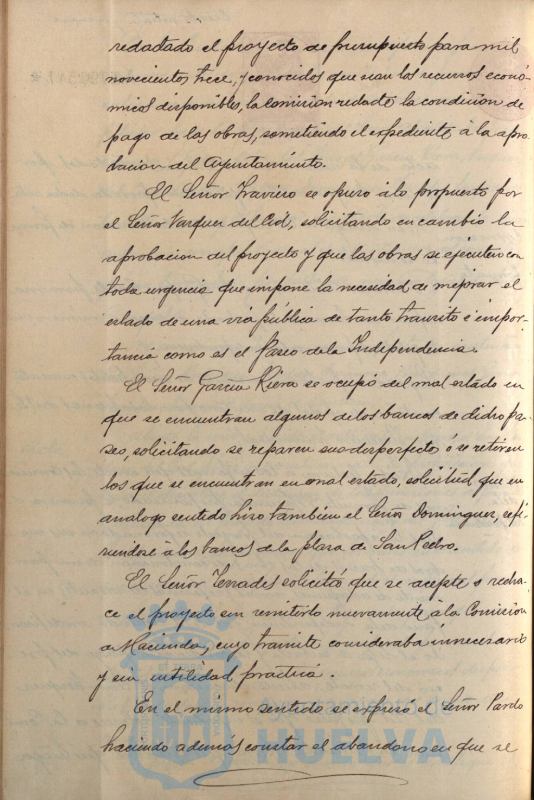 redactado el proyecto de presupuesto para mil
novecientos trece, y conocidos que sean los recursos econó-
micos disponibles, la Comision redacte la condicion de
pago de las obras, sometiendo el expediente á la apro-
bacion del Ayuntamiento.
El Señor Traviero se opuso á lo propuesto por
el Señor Vazquez del Cid, solicitando en cambio la
aprobacion del proyecto y que las obras se ejecuten con
toda urgencia que impone la necesidad de mejorar el
estado de una via pública de tanto transito é impor-
tancia como es el Paseo de la Independencia.
El Señor Garcia Riera se ocupó del mal estado en
que se encuentran algunos de los bancos de dicho pa-
seo, solicitando se reparen sus desperfectos, ó se retiren
los que se encuentran en mal estado, solicitud que en
analogo sentido hizo tambien el Señor Dominguez, refi-
riendose á los bancos de la plaza de San Pedro.
El Señor Terrades solicitó que se acepte ó recha-
ce el proyecto sin remitirlo nuevamente á la Comision
de Hacienda, cuyo tramite consideraba innecesario
y sin utilidad practica.
En el mismo sentido se expresó el Señor Pardo
haciendo además constar el abandono en que se
HUELVA